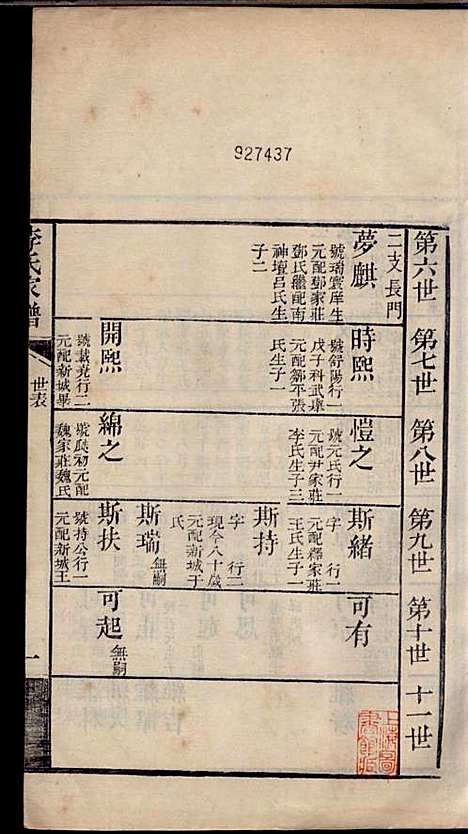 927437
第六世 第七世 第八世 第九世 第十世 十一世
二支長門
夢麒
號瑞寰庠生
元配鄧家莊
鄧氏繼配南
神壇呂氏生
子二
時熙
號舒陽行一
戊子科武舉
元配鄒平張
氏生子一
愷之
號元氏行一
元配尹家莊
李氏生子三
斯緒
字 行一
元配釋家莊
王氏生子一
可有
斯持
字 行二
現今八十歲
元配新城于
氏
斯瑞
無嗣
開熙
號載堯行二
元配新城畢
綿之
號瓞初元配
魏家莊魏氏
斯扶
號持公行一
元配新城王
可起
無嗣
李氏家譜
世表
一
上海圖書館藏